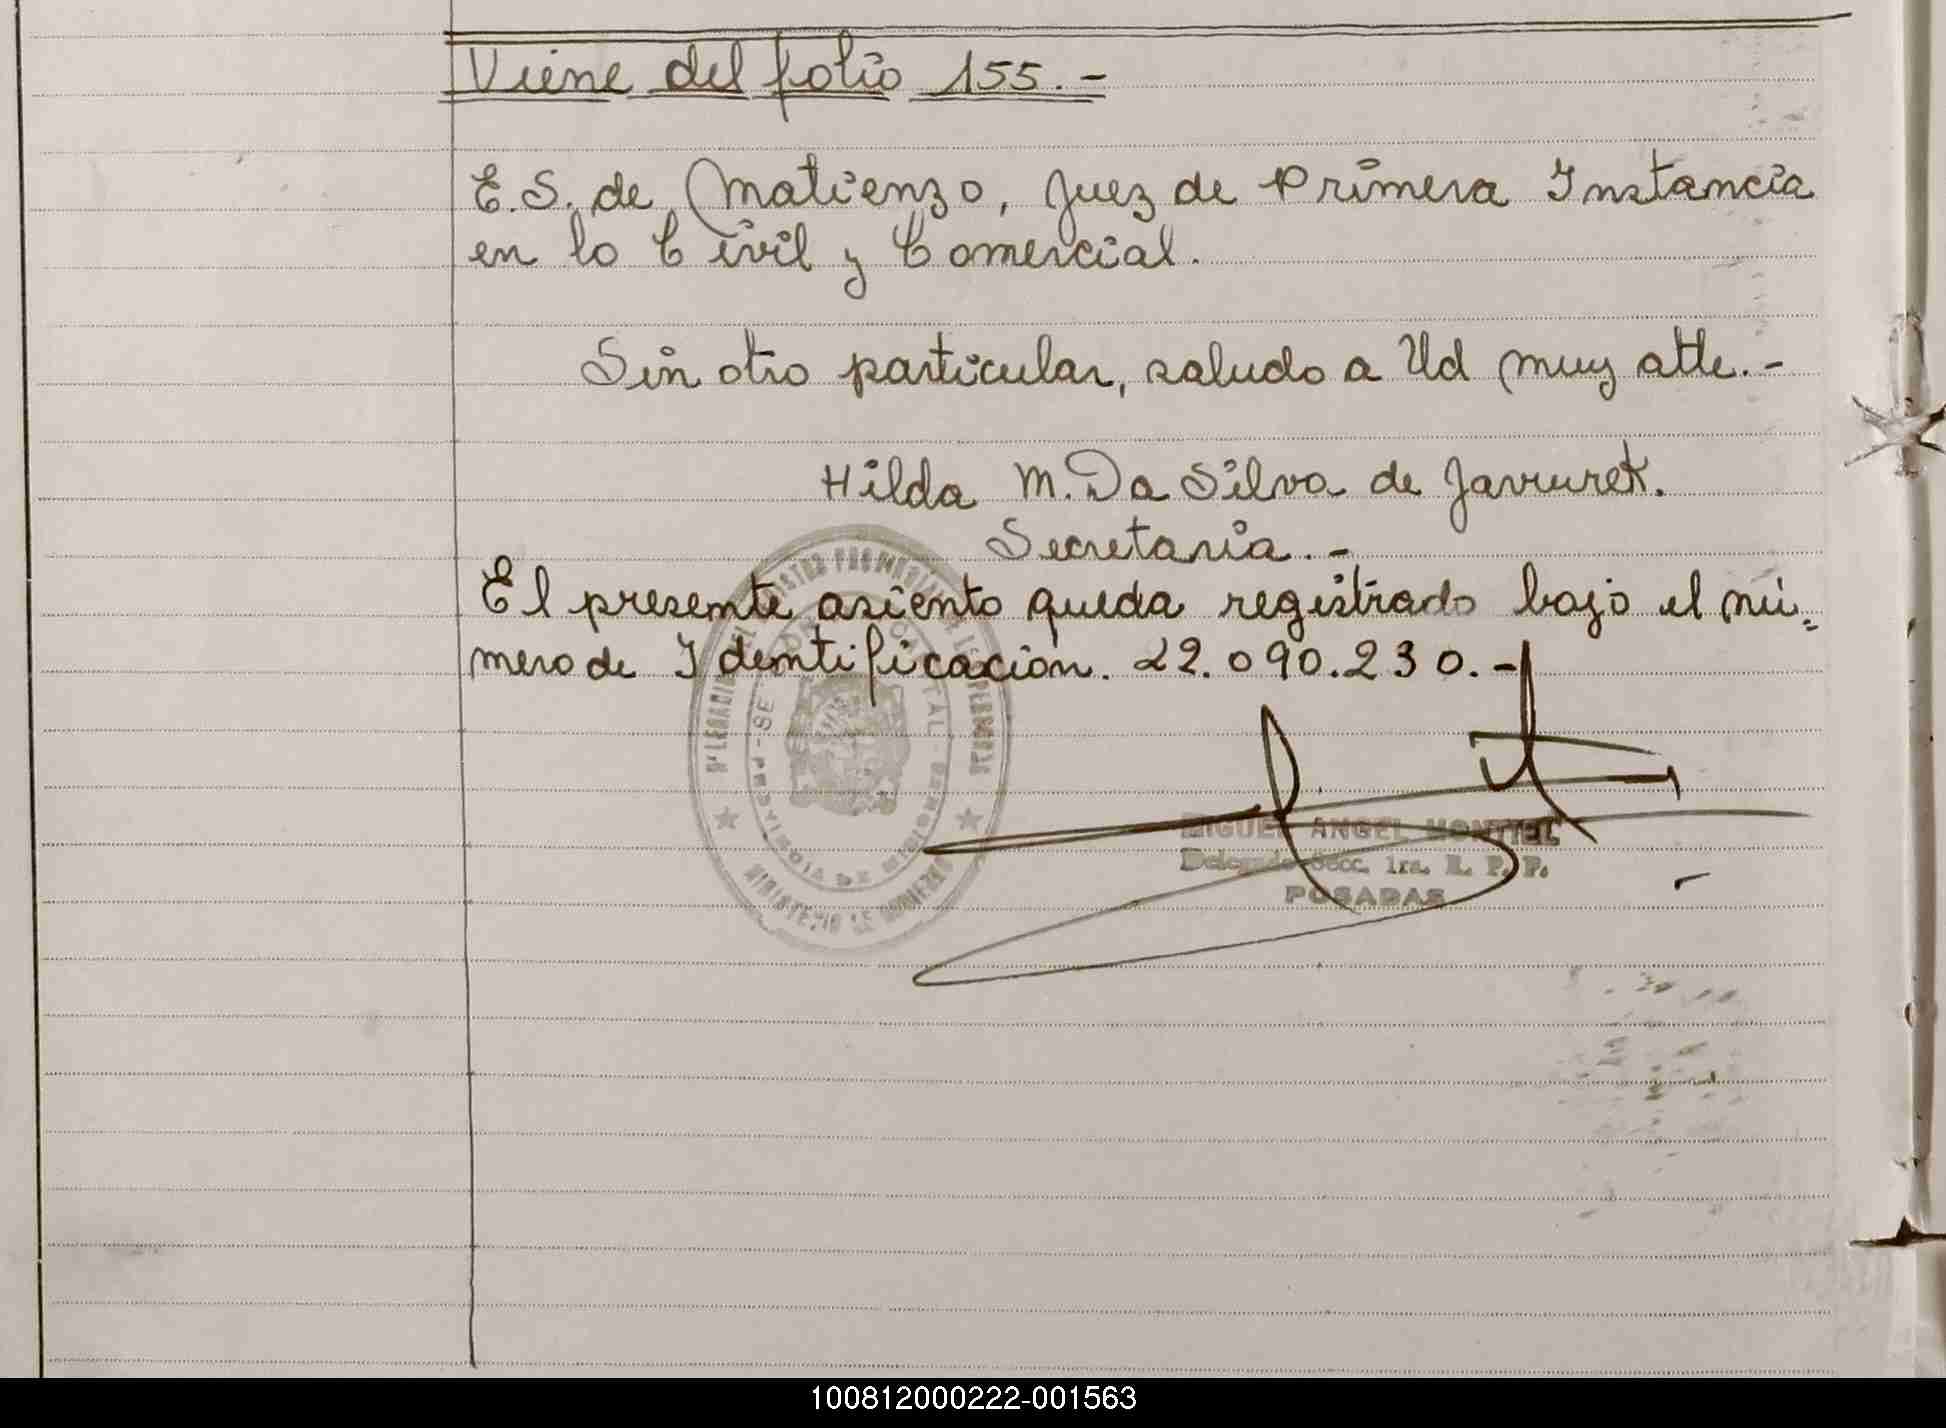 Viene del folio 155.-
E.S. de Matienzo, Juez de Primera Instancia
en lo Civil y Comercial.
Sin otro particular, saludo a Ud muy atte.-
Hilda M. Da Silva de Javurek.
Secretaria.-
El presente asiento queda registrado bajo el nú=
mero de Identificación. 22.090.230.-
MIGUEL ANGEL MONTIEL
Delegado Secc. 1ra. R. P. P.
POSADAS
MINISTERIO DE GOBIERNO
PROVINCIA DE MISIONES
100812000222-001563